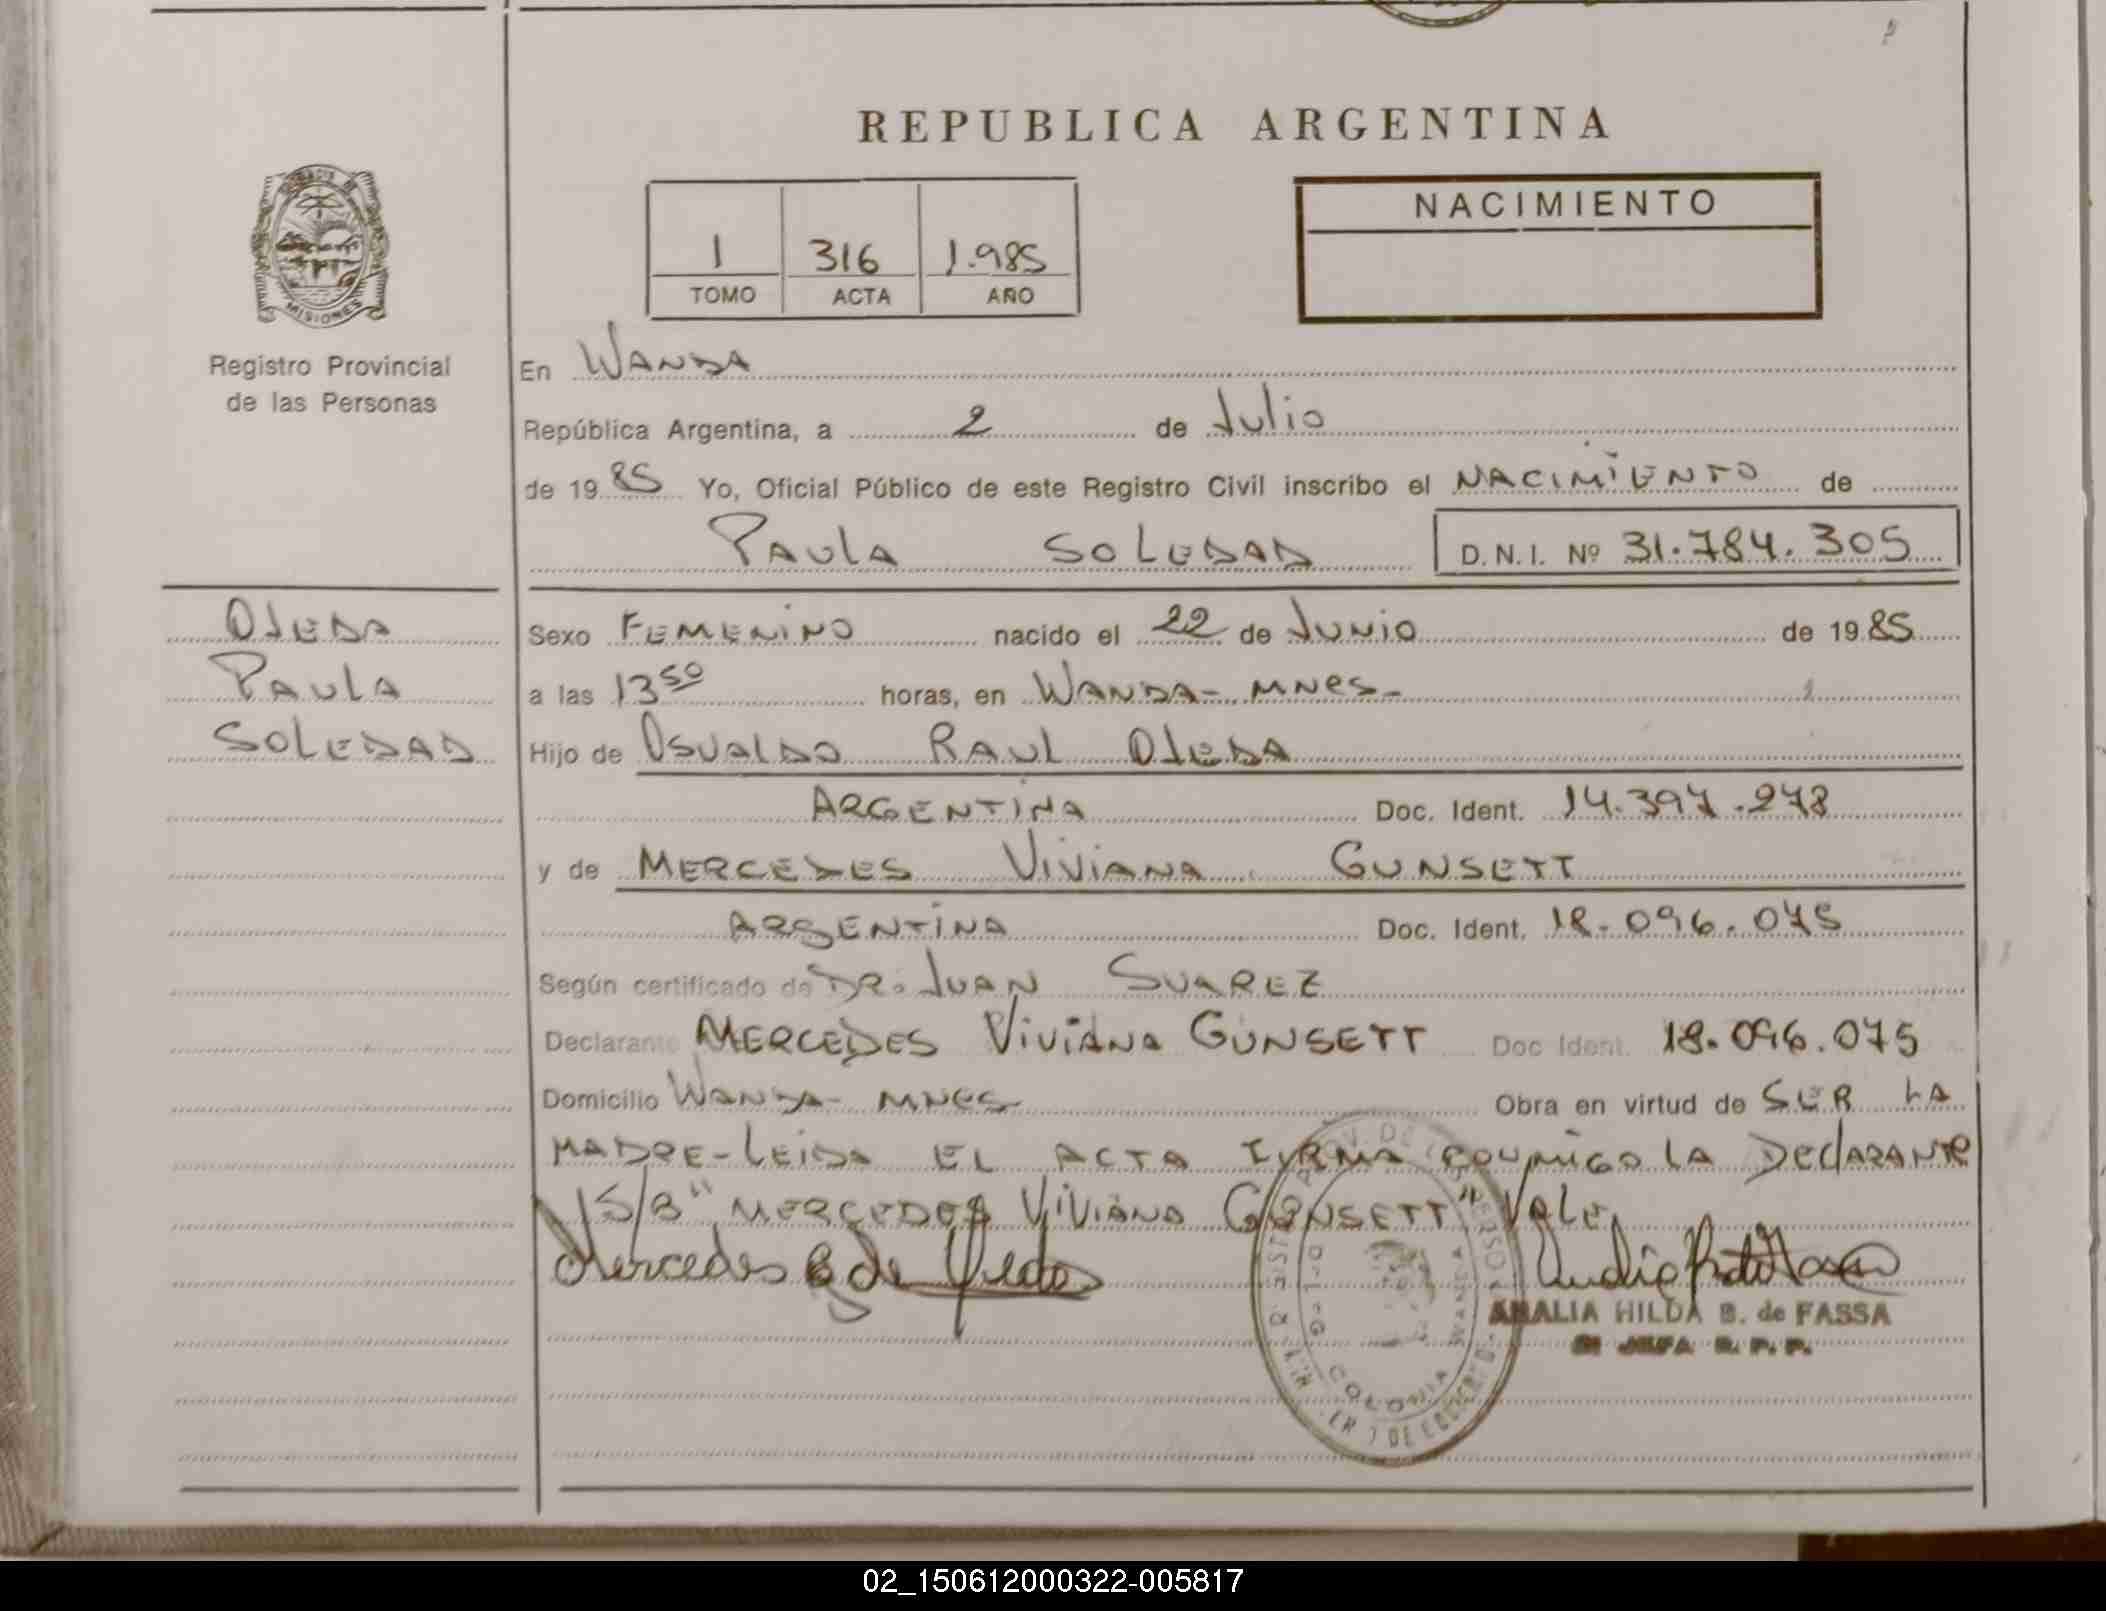 REPUBLICA ARGENTINA
NACIMIENTO
1 316 1.985
TOMO ACTA AÑO
MISIONES
Registro Provincial
de las Personas
En WANDA
República Argentina, a 2 de Julio
de 1985 Yo, Oficial Público de este Registro Civil inscribo el NACIMIENTO de
PAULA SOLEDAD D.N.I. Nº 31.784.305
OJEDA
PAULA
SOLEDAD
Sexo FEMENINO nacido el 22 de JUNIO de 1985
a las 13 50 horas, en WANDA- MNES-
Hijo de OSVALDO RAUL OJEDA
ARGENTINA Doc. Ident. 14.397.278
y de MERCEDES VIVIANA GUNSETT
ARGENTINA Doc. Ident. 18.096.075
Según certificado de DR. JUAN SUAREZ
Declarante MERCEDES VIVIANA GUNSETT Doc Ident. 18.096.075
Domicilio WANDA- MNES Obra en virtud de SER LA
MADRE-LEIDA EL ACTA FIRMA CONMIGO LA DECLARANTE
S/B "MERCEDES VIVIANA GUNSETT" VALE
Mercedes G de Ojeda
COLONIA WANDA
ANALIA HILDA B. de FASSA
JEFA R. P. P.
02_150612000322-005817